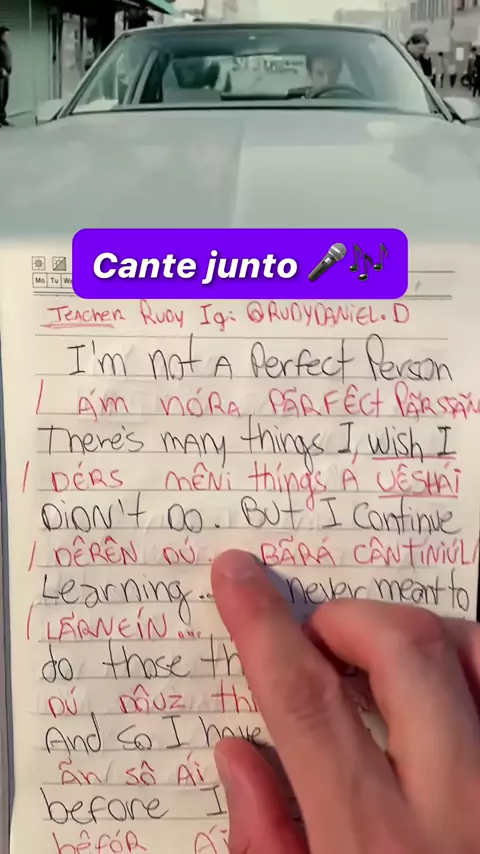 Cante junto 🎤🎶
Mo Tu We
Teacher Rudy Ig: @RUDYDANIEL.D
I'm not A Perfect Person
/ ÁM NÓRA PÃRFÊCT PÃRSSÃN
There's many things I wish I
/ DÉRS MÊNI thíngs Á UÊSHÁI
DIDN'T DO. BUT I Continue
/ DÊRÊN DÚ. BÃRÁ CÂNTINIÚL
Learning... never meant to
/ LÃRNEÍN...
do those th
DÚ DÔUZ thi
And so I have
ÃN SÔ ÁI
before I
bêfór ÁI